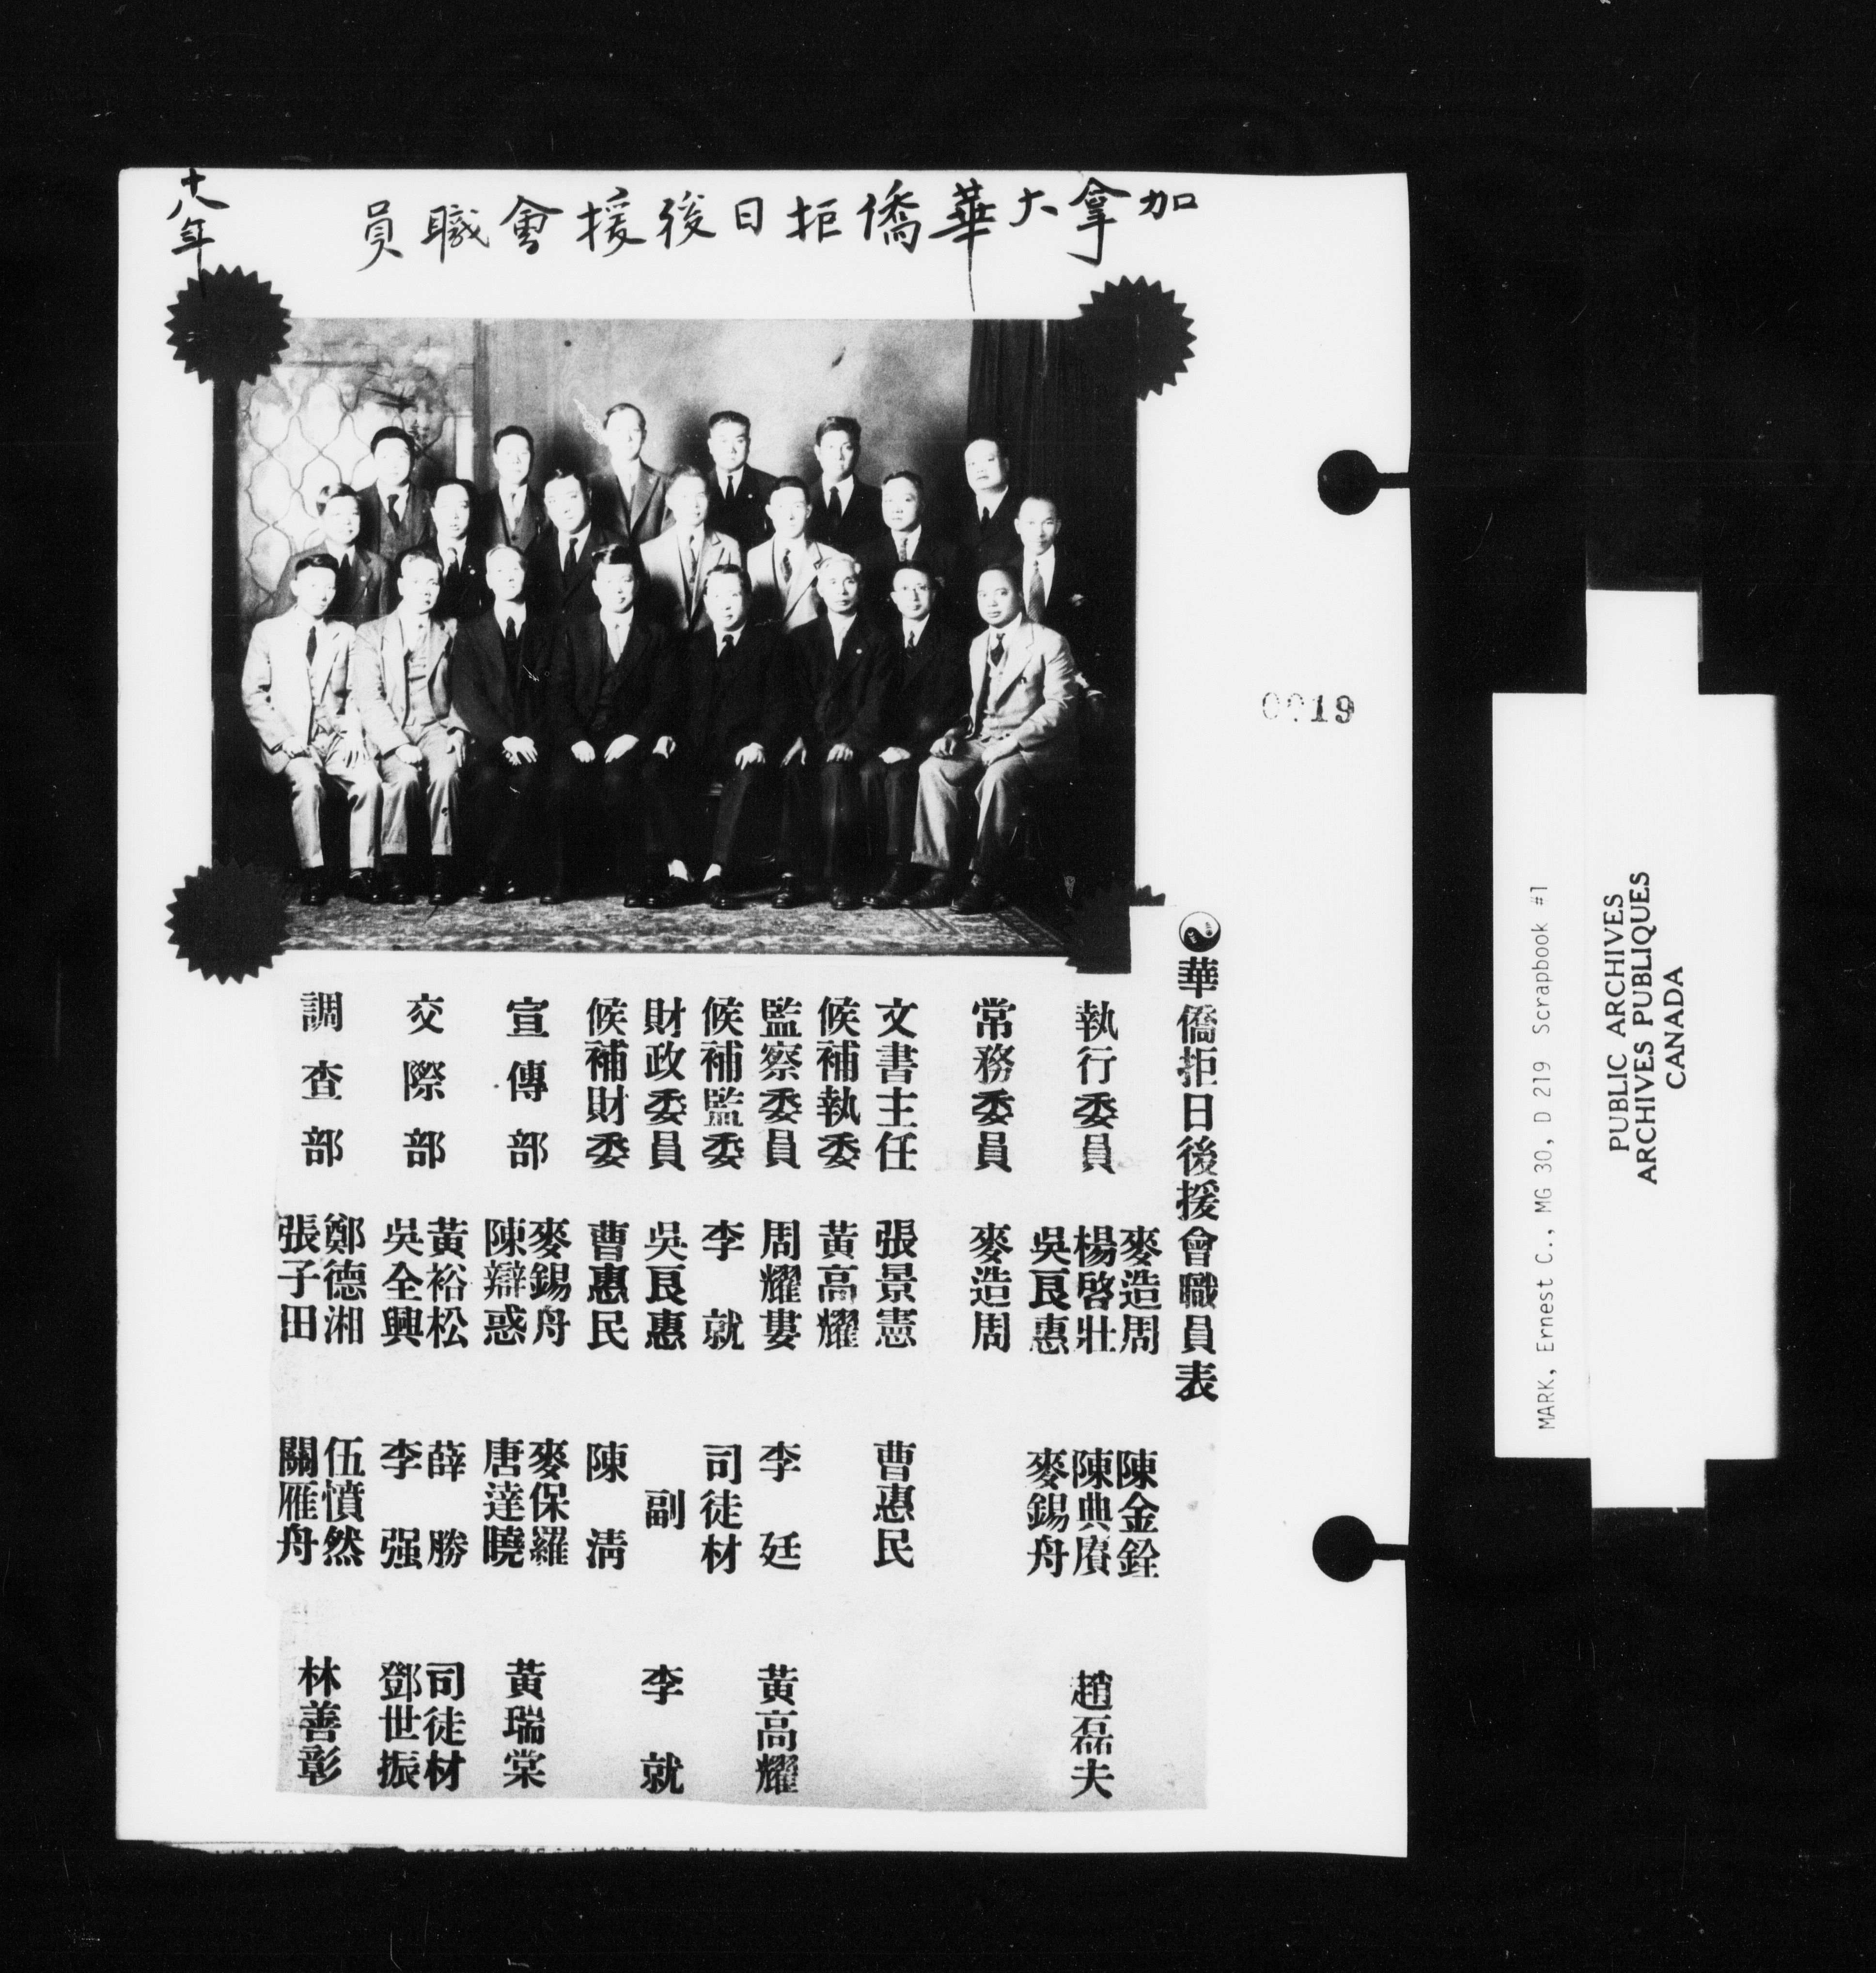 加拿大華僑拒日後援會職員
十八年
華僑拒日後援會職員表
執行委員 麥造周 陳金銓
楊啓壯 陳典賡 趙磊夫
吳良惠 麥錫舟
常務委員 麥造周
文書主任 張景憲 曹惠民
候補執委 黃高耀
監察委員 周耀婁 李廷 黃高耀
候補監委 李就 司徒材
財政委員 吳良惠 副 李就
候補財委 曹惠民 陳清
宣傳部 麥錫舟 麥保羅 黃瑞棠
陳辯惑 唐達曉
交際部 黃裕松 薛勝 司徒材
吳全興 李强 鄧世振
調查部 鄭德湘 伍憤然 林善彰
張子田 關雁舟
0019
MARK, Ernest C., MG 30, D 219 Scrapbook #1
PUBLIC ARCHIVES
ARCHIVES PUBLIQUES
CANADA